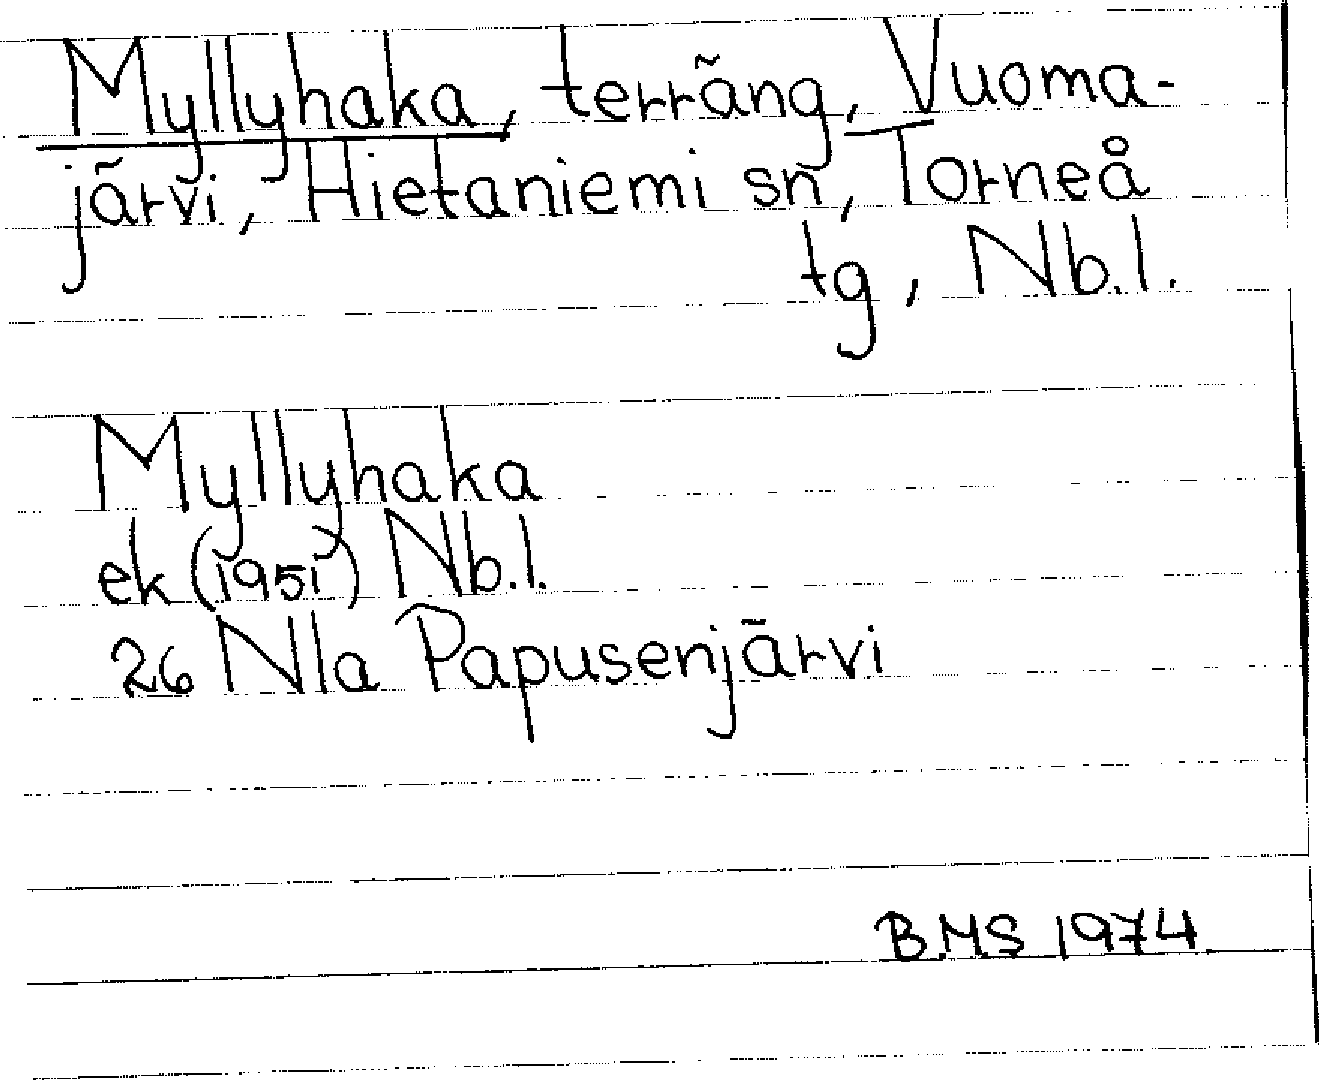 Myllyhaka, terräng, Vuoma-
järvi, Hietaniemi sn, Torneå
tg, Nb.l.
Myllyhaka
ek (1951) Nb.l.
26 Nla Papusenjärvi
BMS 1974